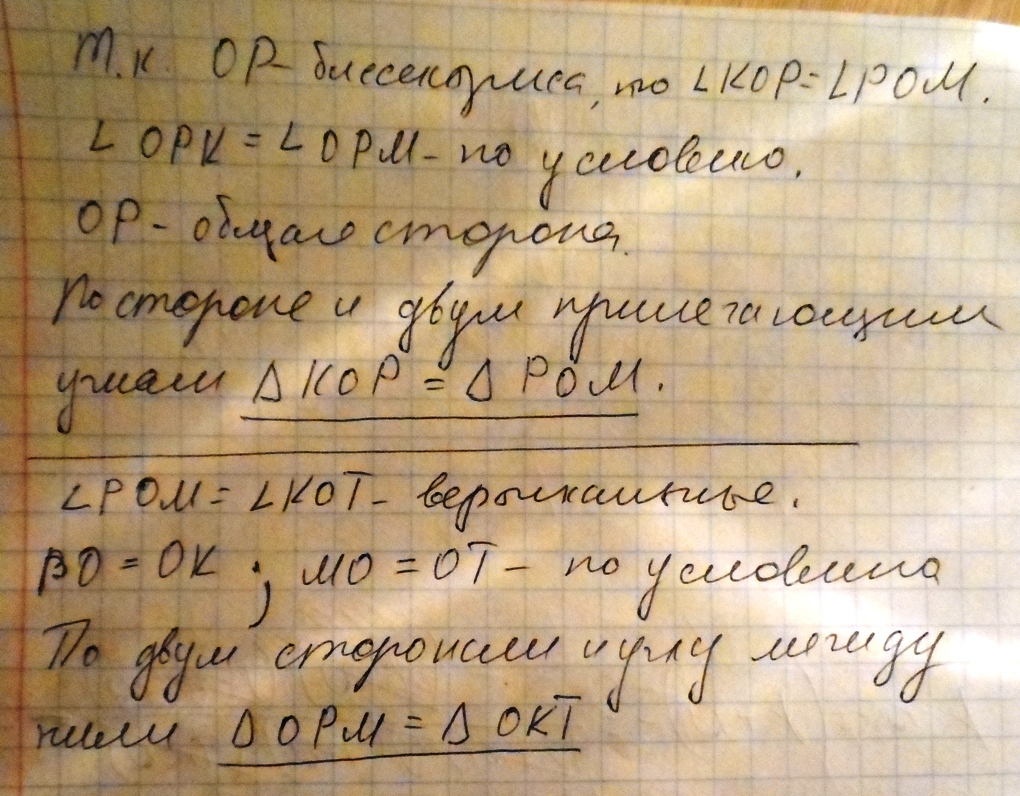 Т.к. OP - биссектриса, то ∠KOP = ∠POM.
∠OPK = ∠OPM - по условию.
OP - общая сторона.
По стороне и двум прилегающим
углам ΔKOP = ΔPOM.
∠POM = ∠KOT - вертикальные.
PO = OK ; MO = OT - по условию
По двум сторонам и углу между
ними ΔOPM = ΔOKT